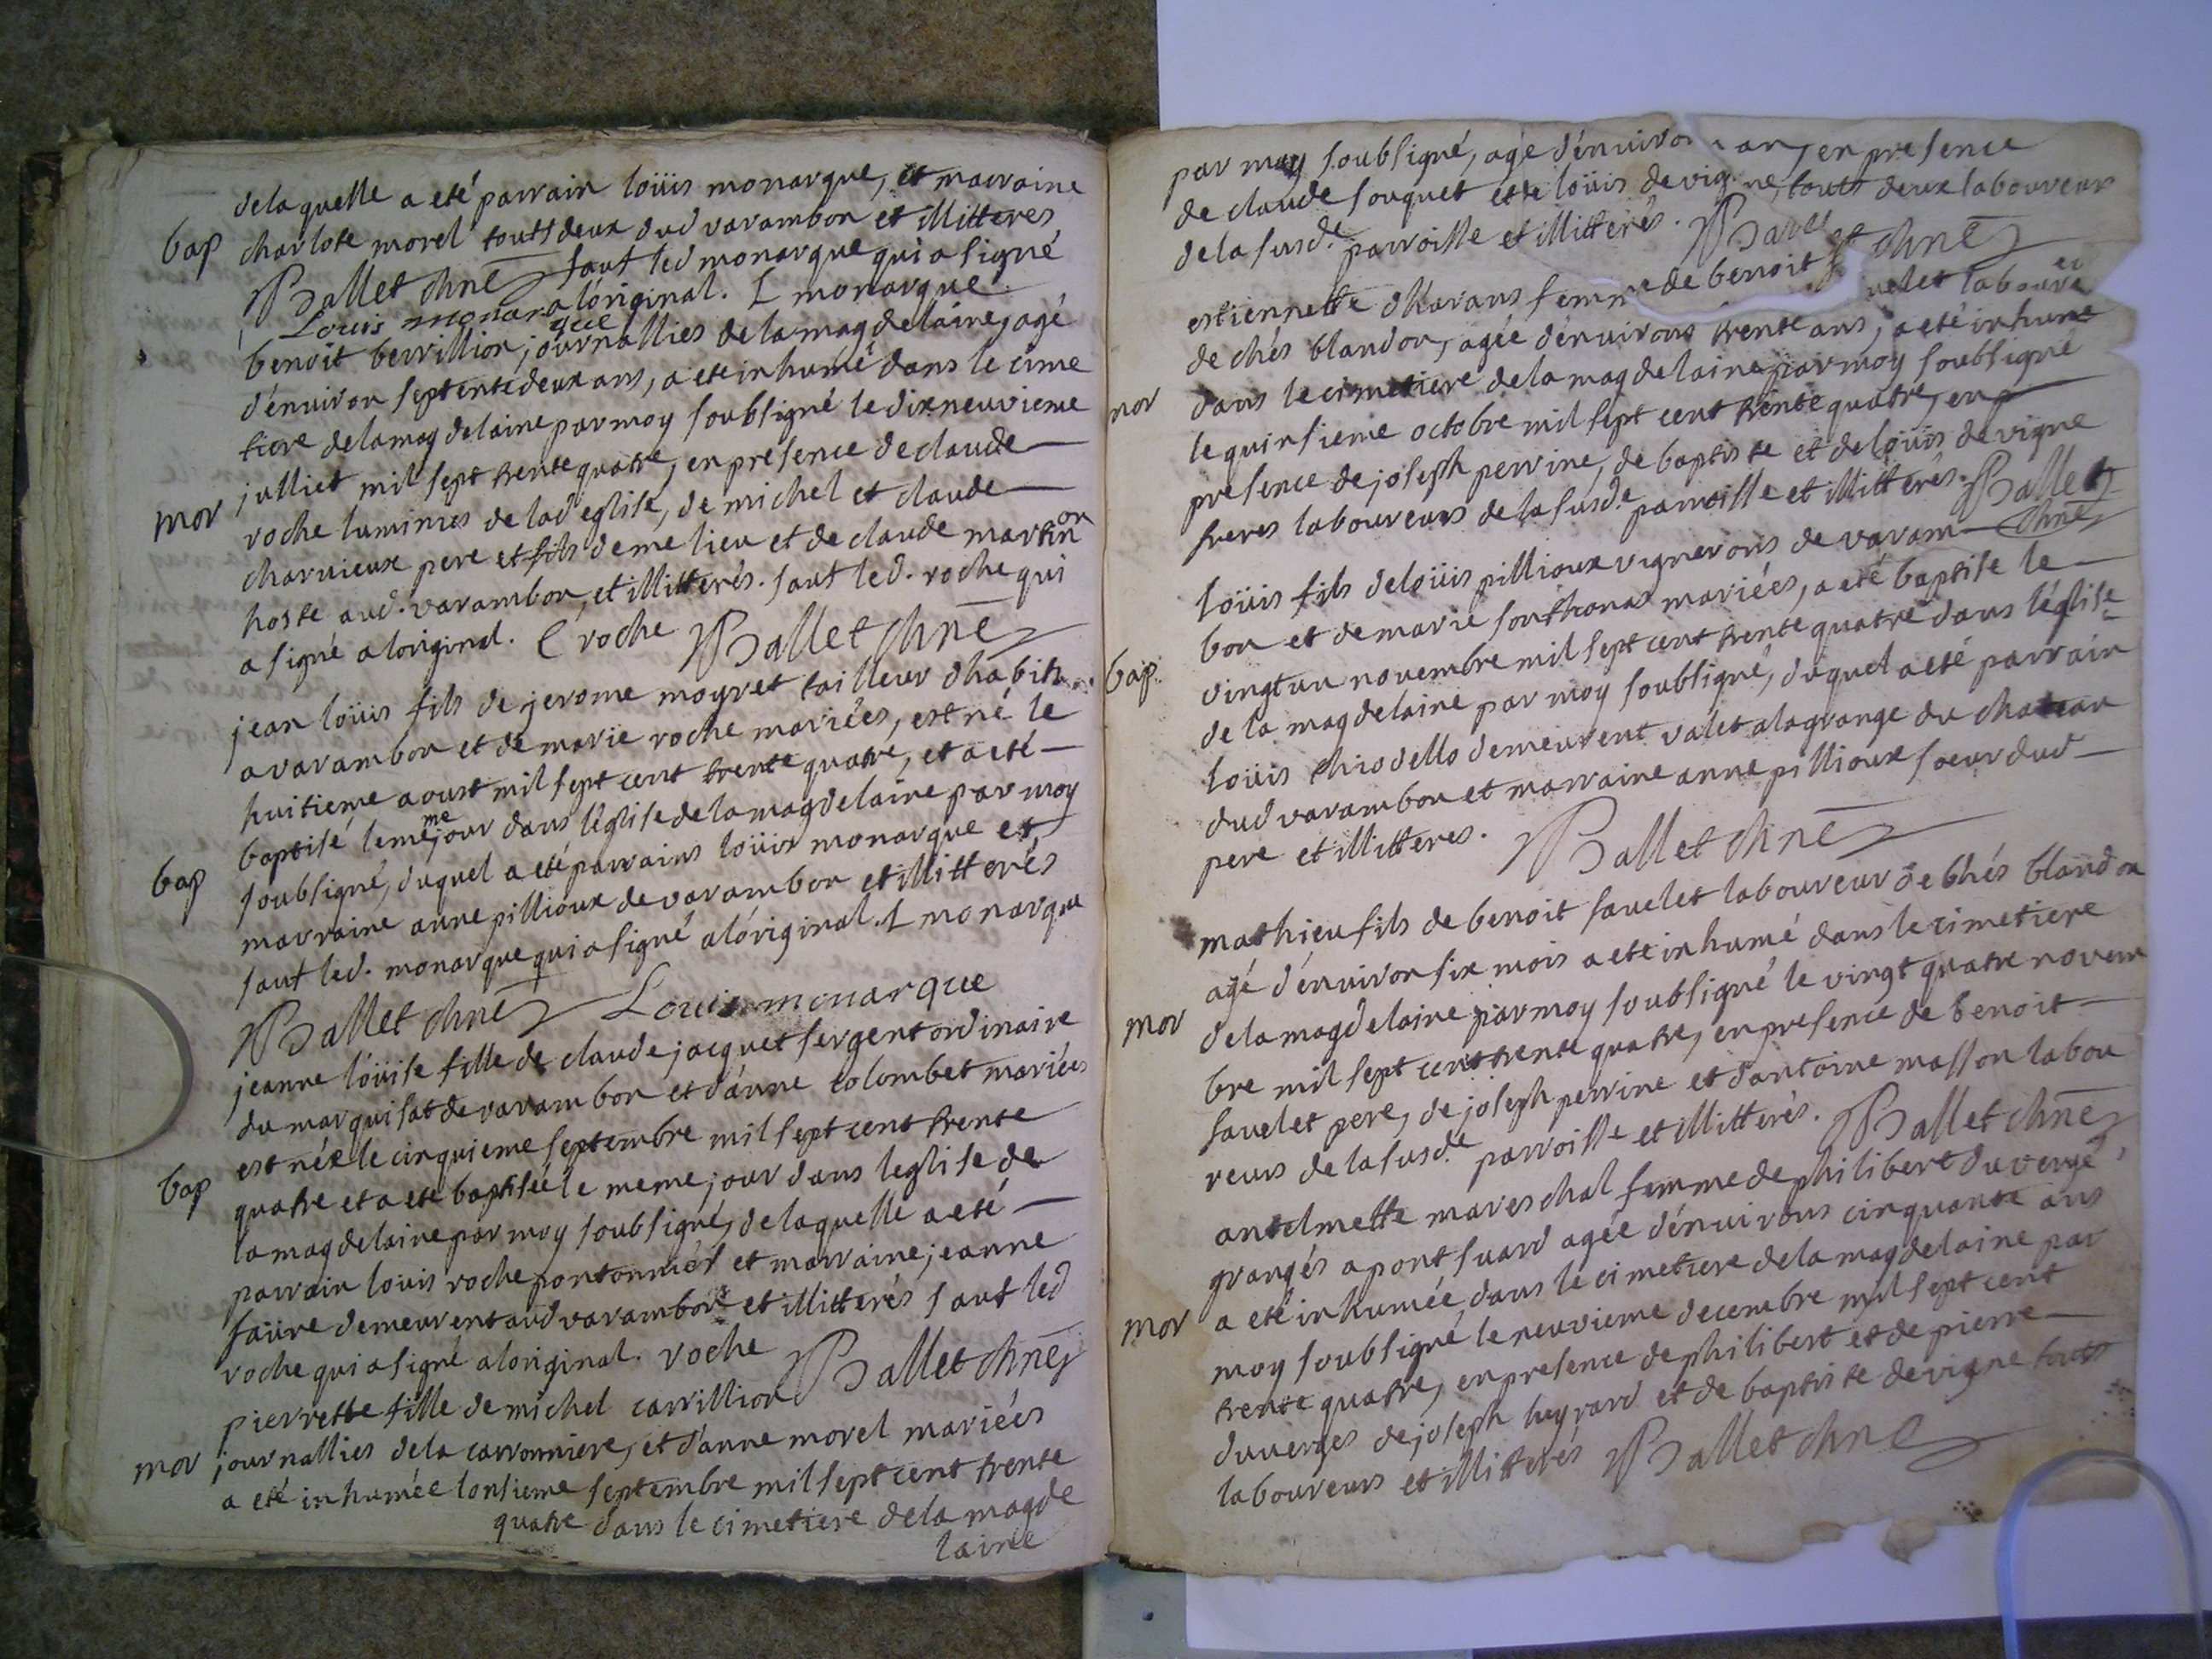 delaquelle a eté parrain loüis monarque, et marraine
bap charlote morel touts deux dud varambon et illitteres
Ballet chne sauf led monarque qui a signé
Louis monarque a lóriginal. L monarque
benoit berrillion journallies de la magdelaine, agé
dénuiron septente deux ans, a eté inhumé dans le cime
tiere de la magdelaine par moy soubsigné le dixneuvieme
julliet mil sept trente quatre, en presence de claude
mor roche luminies de lad eglise, de michel et claude
charuieux pere et fils deme lieu et de claude martinon
hoste aud. varambon, et illitterés. sauf led. roche qui
a signé a loriginal. C roche Ballet chne
jean loüis fils de jerome moyret tailleur dhabits
a varambon et de marie roche mariées, est né le
huitieme aoust mil sept cent trente quatre, et a eté
baptisé le meme jour dans léglise de la magdelaine par moy
bap soubsigné, duquel a eté parrains loüis monarque et
marraine anne pillioux de varambon et illitterés
sauf led. monarque qui a signé a lóriginal. L monarque
Ballet chne Louis monarque
jeanne loüise fille de claude jacquet sergent ordinaire
du marquisat de varambon et dánne colombet mariées
est née le cinquieme septembre mil sept cent trente
bap quatre et a eté baptisée le meme jour dans leglise de
la magdelaine par moy soubsigné, de laquelle a eté
parrain louis roche pontonnier et marraine jeanne
faüre demeurent aud varambon et illitterés sauf led
roche qui a signé a loriginal. roche Ballet chne
pierrette fille de michel carrillion
mor journallies de la carronniere, et dánne morel mariées
a eté inhumée lonsieme septembre mil sept cent trente
quatre dans le cimetiere de la magde
laine
par moy soubsigné, agé dénuiron an, en presence
de claude fouquet et de loüis devigne, touts deux laboureurs
de la susd.e parroisse et illitterés. Ballet chne
estiennette dhavans femme de benoit velet laboureu
de chés blandon, agée dénuirons trente ans, a eté inhume
mor dans le cimetiere de la magdelaine par moy soubsigné
le quinsieme octobre mil sept cent trente quatre, en
presence de joseph perrine, de baptiste et de loüis devigne
freres laboureurs de la susd.e parroisse et illitterés. Ballet
chne
loüis fils de loüis pillioux vignerons de varam
bon et de marie fonthanas mariées, a eté baptise le
bap vingt un novembre mil sept cent trente quatre dans léglise
de la magdelaine par moy soubsigné, duquel a eté parrain
loüis chiodello demeurent valet a la grange du chateau
dud varambon et marraine anne pillioux soeur dud
pere et illitteres. Ballet chne
mathieu fils de benoit favelet laboureur de chés blandon
agé dénuiron six mois a eté inhumé dans le cimetiere
mor de la magdelaine par moy soubsigné le vingt quatre novem
bre mil sept cent trente quatre, en presence de benoit
favelet pere, de joseph perrine et dántoine masson labou
reurs de la susd.e parroisse et illitterés. Ballet chne
antelmette mareschal femme de philibert duvergé
grangés a pont suard agée dénuirons cinquante ans
mor a eté inhumée, dans le cimetiere de la magdelaine par
moy soubsigné le neuvieme decembre mil sept cent
trente quatre, en presence de philibert et de pierre
duverges de joseph huyrard et de baptiste devigne touts
laboureurs et illitterés Ballet chne